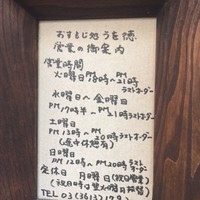 おすもじ処うを徳
営業の御案内
営業時間
火曜日 PM18時〜PM21時 ラストオーダー
水曜日〜金曜日
PM17時半〜PM21時ラストオーダー
土曜日
PM13時〜PM20時ラストオーダー
(途中休憩有)
日曜日
PM12時〜PM20時 ラストオーダー
定休日 月曜日(祝日営業)
(祝日時は翌火曜日振替)
TEL 03(3613)179